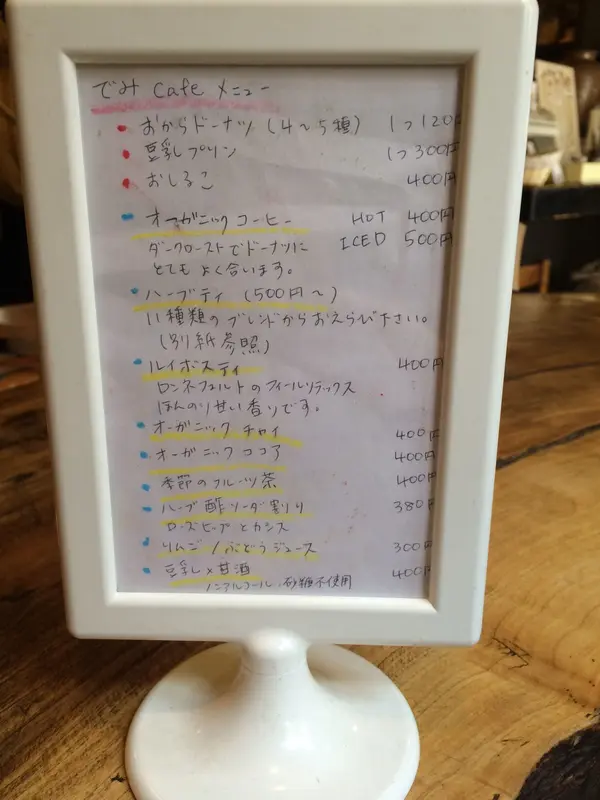 でみ cafe メニュー
おからドーナツ (4～5種) 1つ120円
豆乳プリン 1つ300円
おしるこ 400円
オーガニックコーヒー HOT 400円
ダークローストでドーナツに ICED 500円
とてもよく合います。
ハーブティ (500円～)
11種類のブレンドからおえらび下さい。
(別紙参照)
ルイボスティ 400円
ロンネフェルトのフィールリラックス
ほんのり甘い香りです。
オーガニック チャイ 400円
オーガニックココア 400円
季節のフルーツ茶 400円
ハーブ酢ソーダ割り 380円
ローズヒップとカシス
りんご/ぶどうジュース 300円
豆乳×甘酒 400円
ノンアルコール・砂糖不使用